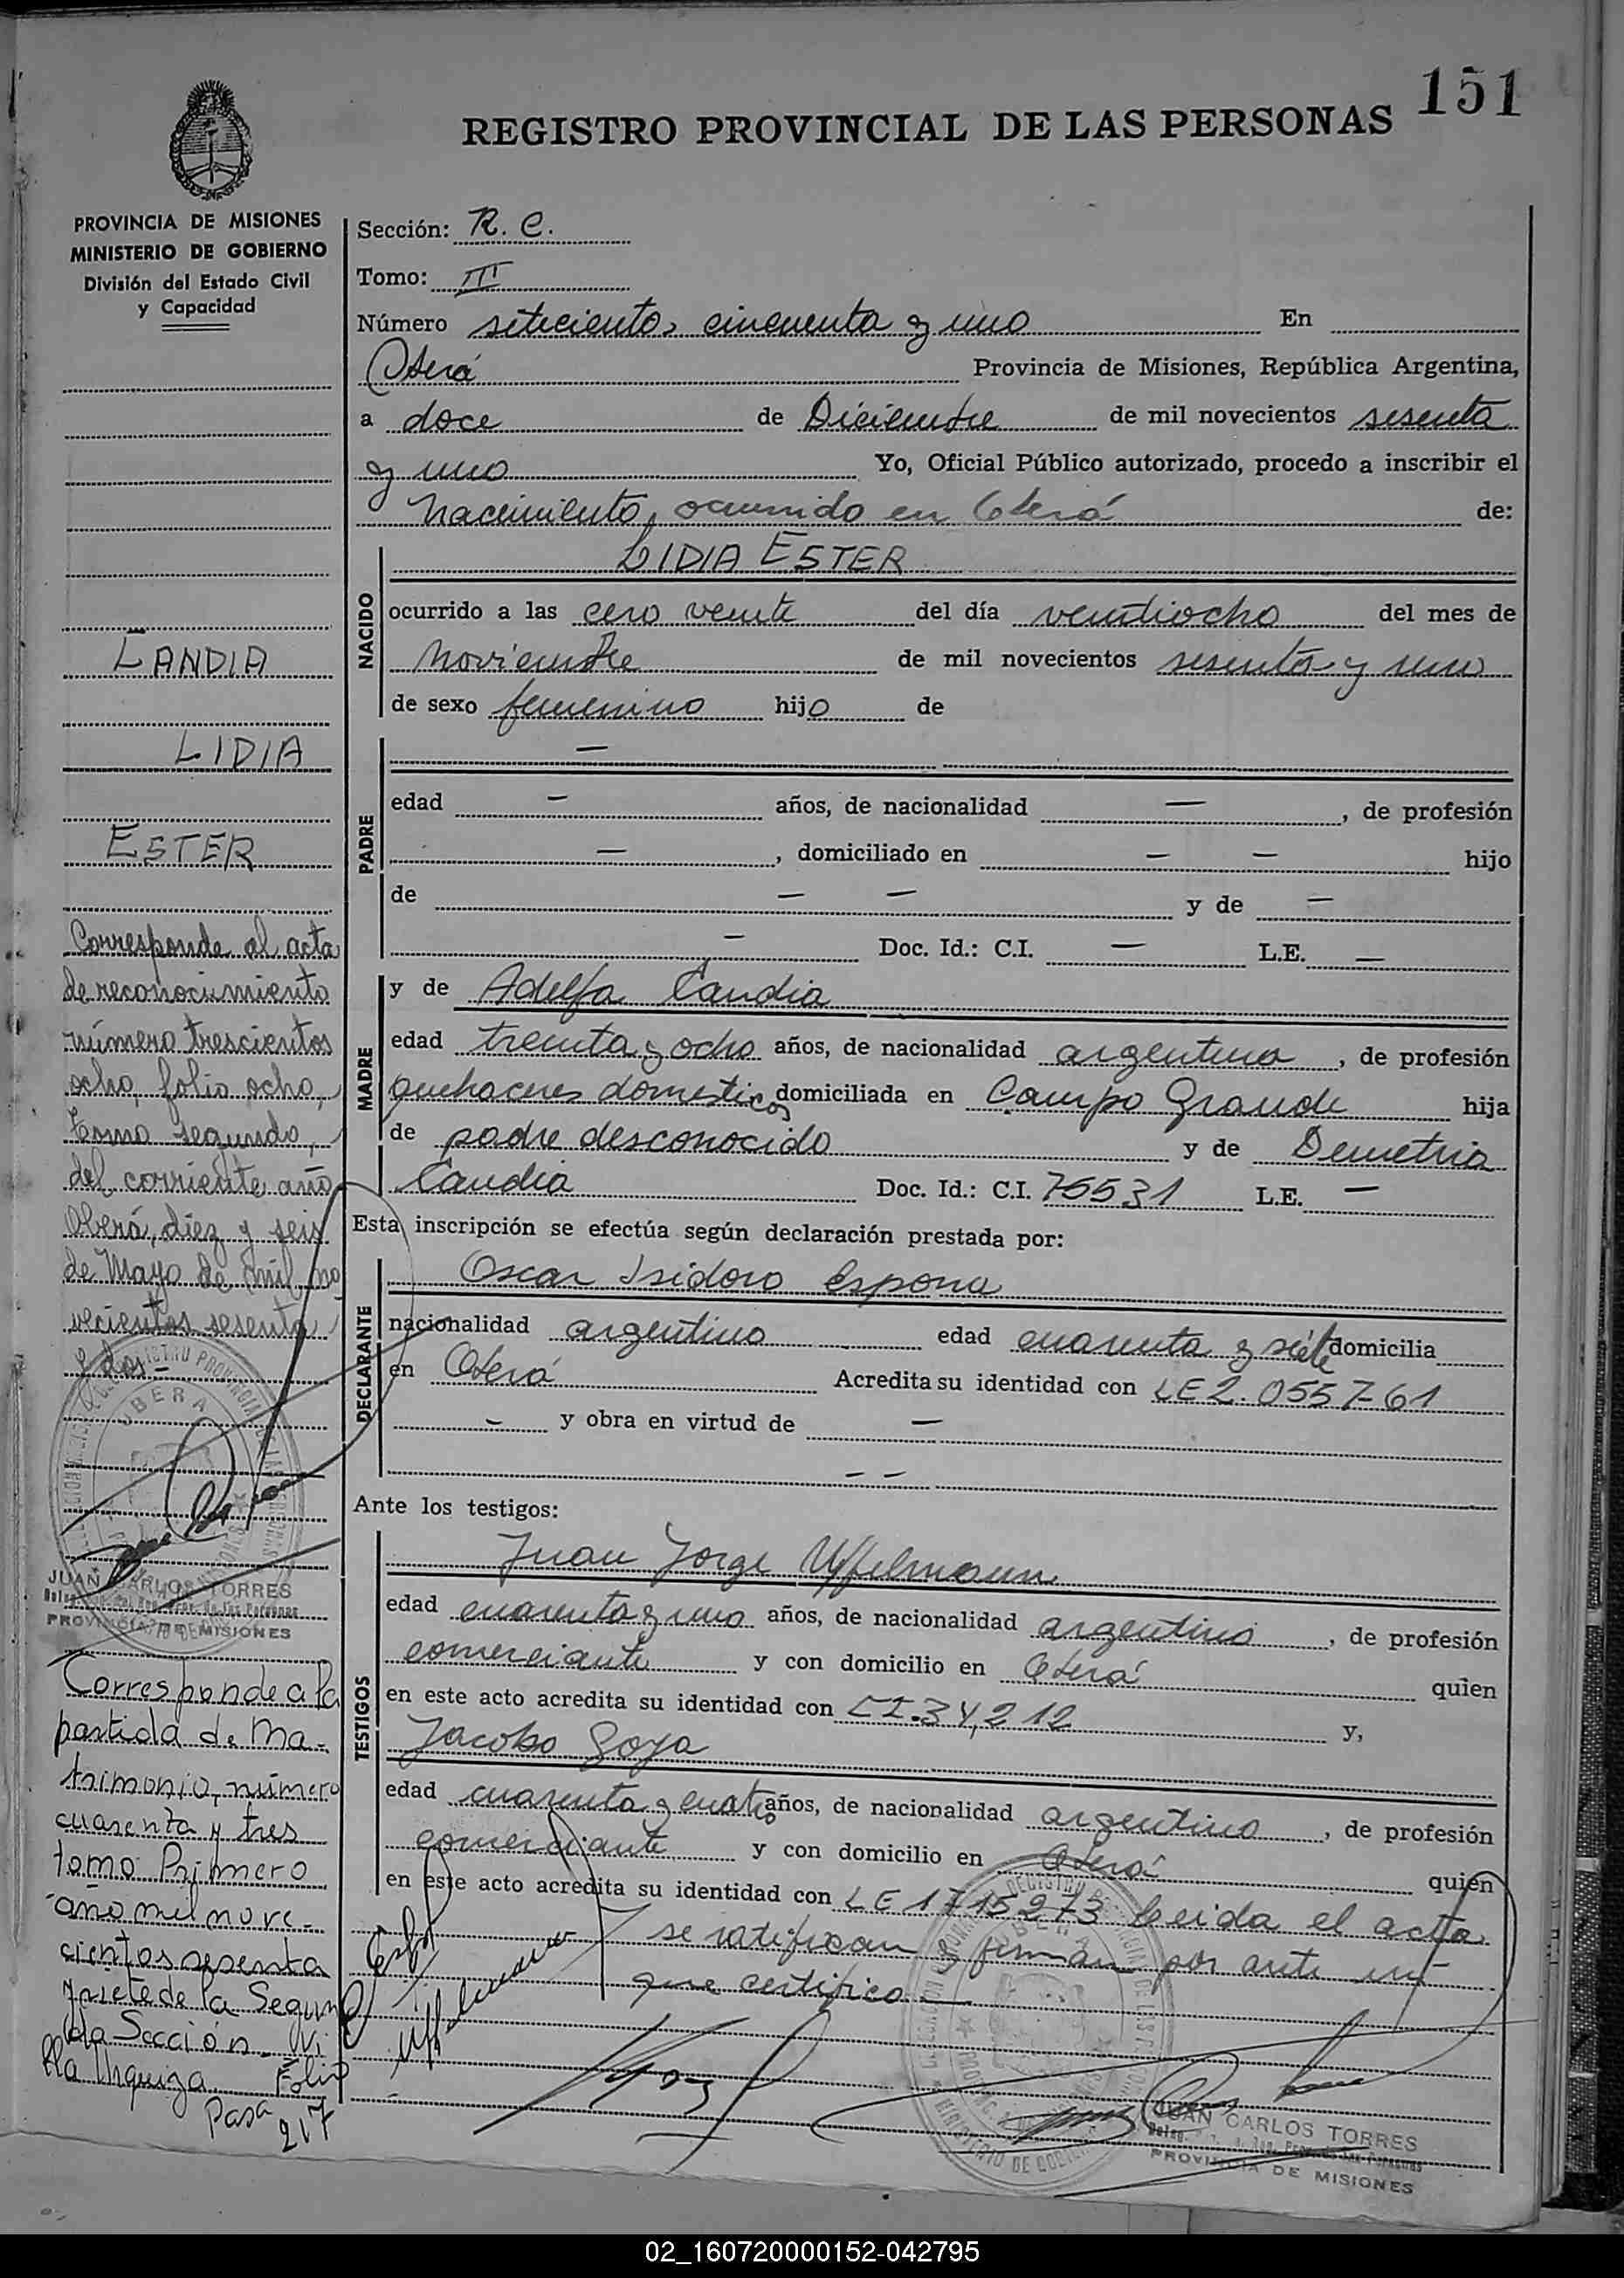 151
REGISTRO PROVINCIAL DE LAS PERSONAS
PROVINCIA DE MISIONES
MINISTERIO DE GOBIERNO
División del Estado Civil
y Capacidad
Sección: R. C.
Tomo: III
Número setecientos cincuenta y uno En
Oberá Provincia de Misiones, República Argentina,
a doce de Diciembre de mil novecientos sesenta
y uno Yo, Oficial Público autorizado, procedo a inscribir el
nacimiento, ocurrido en Oberá de:
NACIDO
LIDIA ESTER
ocurrido a las cero veinte del día veintiocho del mes de
Noviembre de mil novecientos sesenta y uno
de sexo femenino hijo de
PADRE
—
edad — años, de nacionalidad —, de profesión
—, domiciliado en — — hijo
de — — y de —
— Doc. Id.: C.I. — L.E. —
MADRE
y de Adelfa Candia
edad treinta y ocho años, de nacionalidad argentina, de profesión
quehaceres domesticos domiciliada en Campo Grande hija
de padre desconocido y de Demetria
Candia Doc. Id.: C.I. 75531 L.E. —
Esta inscripción se efectúa según declaración prestada por:
DECLARANTE
Oscar Isidoro Espona
nacionalidad argentino edad cuarenta y siete domicilia
en Oberá Acredita su identidad con LE 2.055761
— y obra en virtud de —
— —
Ante los testigos:
TESTIGOS
Juan Jorge Uffelmann
edad cuarenta y uno años, de nacionalidad argentino, de profesión
comerciante y con domicilio en Oberá quien
en este acto acredita su identidad con CI.34,212 y,
Jacobo Goya
edad cuarenta y cuatro años, de nacionalidad argentino, de profesión
comerciante y con domicilio en Oberá quien
en este acto acredita su identidad con LE 1715273 Leida el acta
se ratifican y firman por ante mí
que certifico —
Uffelmann
JUAN CARLOS TORRES
PROVINCIA DE MISIONES
CANDIA
LIDIA
ESTER
Corresponde al acta
de reconocimiento
número trescientos
ocho, folio ocho,
Tomo segundo,
del corriente año
Oberá, diez y seis
de Mayo de mil no
vecientos sesenta
y dos —
OBERA
JUAN CARLOS TORRES
PROVINCIA DE MISIONES
Corresponde a la
partida de Ma-
trimonio, número
cuarenta y tres
tomo Primero
año mil nove-
cientos sesenta
y siete de la Segun
da Sección. Vi
lla Urquiza. Folio
Pasa 217
02_160720000152-042795